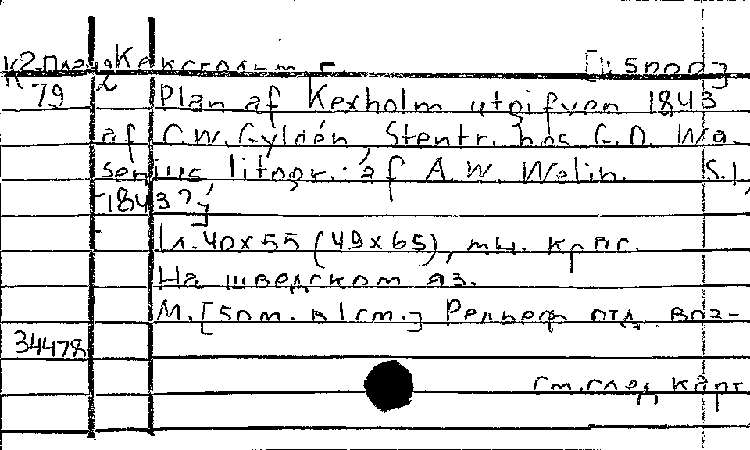 К2-План Кексгольм г. [1:5000]
79 2 Plan af Kexholm utgifven 1843
af C.W. Gyldén, Stentr. hos G.O. Wa-
senius, litogr. af A.W. Welin. S.l,
[1843?]
1 л. 40x55 (49x65), мн. крас.
На шведском яз.
М. [50 m. в 1 см.] Рельеф отд. воз-
34478
См. след. карт.